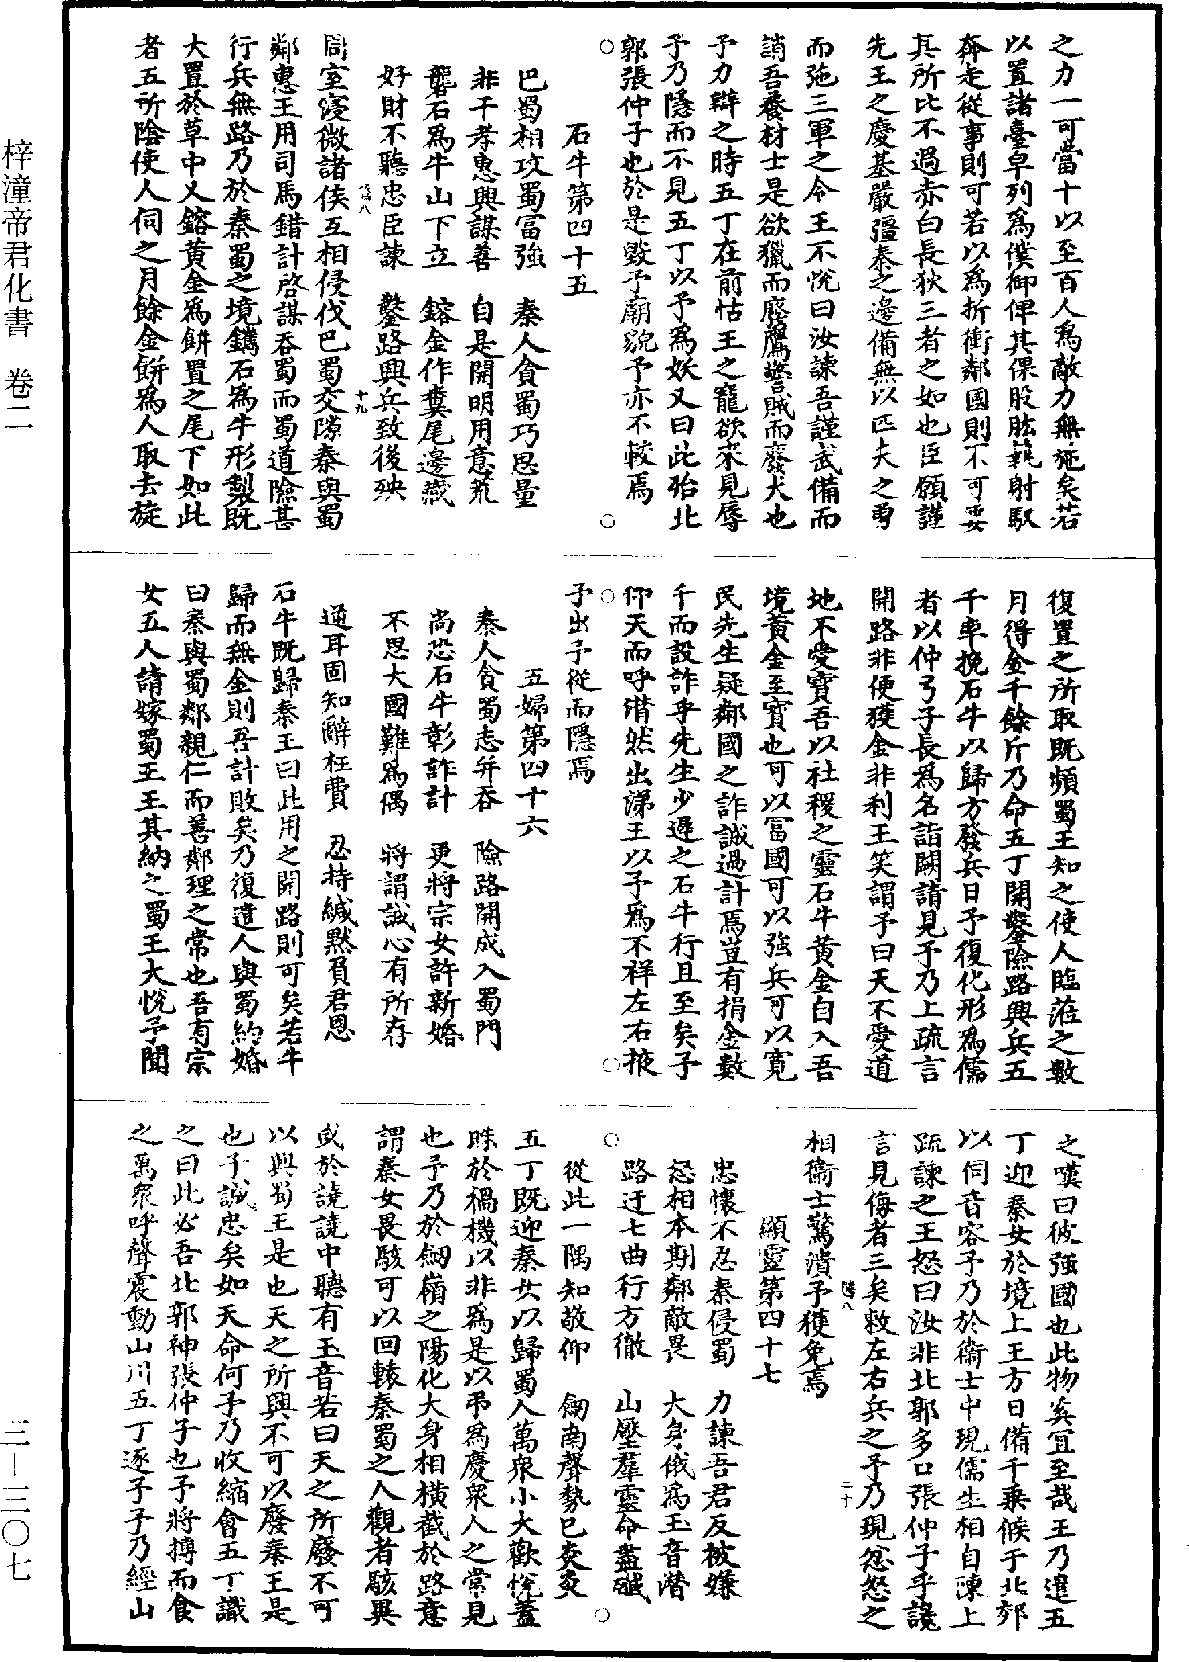 之力一可當十以至百人為敵力無施矣若
以置諸臺皁列為僕御俾其倮股肱蓺射馭
奔走從事則可若以為折衝鄰國則不可要
其所比不過赤白長狄三者之如也臣願謹
先王之慶基嚴彊秦之邊備無以匹夫之勇
而弛三軍之令王不悅曰汝諫吾謹武備而
誚吾養材士是欲獵而壓鷹警賊而廢犬也
予力辯之時五丁在前怙王之寵欲來見辱
予乃隱而不見五丁以予為妖又曰此殆北
郭張仲子也於是毀予廟貌予亦不較焉
石牛第四十五
巴蜀相攻蜀富強　秦人貪蜀巧思量
非干孝惠興謀善　自是開明用意荒
礱石為牛山下立　鎔金作糞尾邊藏
好財不聽忠臣諫　鑿路興兵致後殃
周室寖微諸侯互相侵伐巴蜀交隙秦與蜀
鄰惠王用司馬錯計啓謀吞蜀而蜀道險甚
行兵無路乃於秦蜀之境鐫石為牛形製既
大置於草中又鎔黃金為餅置之尾下如此
者五所陰使人伺之月餘金餅為人取去旋
復置之所取既頻蜀王知之使人臨蒞之數
月得金千餘斤乃命五丁開鑿險路興兵五
千車挽石牛以歸方發兵日予復化形為儒
者以仲弓子長為名詣闕請見予乃上疏言
開路非便獲金非利王笑謂予曰天不愛道
地不愛寶吾以社稷之靈石牛黃金自入吾
境黃金至寶也可以富國可以強兵可以寬
民先生疑鄰國之詐誠過計焉豈有捐金數
千而設詐乎先生少遲之石牛行且至矣予
仰天而呼潸然出涕王以予為不祥左右掖
予出予從而隱焉
五婦第四十六
秦人貪蜀志并吞　險路開成入蜀門
尚恐石牛彰詐計　更將宗女許新婚
不思大國難為偶　將謂誠心有所存
逆耳固知辭枉費　忍持緘默負君恩
石牛既歸秦王曰此用之開路則可矣若牛
歸而無金則吾計敗矣乃復遣人與蜀約婚
曰秦與蜀鄰親仁而善鄰理之常也吾有宗
女五人請嫁蜀王王其納之蜀王大悅予聞
之嘆曰彼強國也此物奚宜至哉王乃選五
丁迎秦女於境上王方日備千乘候于北郊
以伺音容予乃於衛士中現儒生相自陳上
疏諫之王怒曰汝非北郭多口張仲子乎讒
言見侮者三矣敕左右兵之予乃現忿怒之
相衛士驚潰予獲免焉
顯靈第四十七
忠懷不忍秦侵蜀　力諫吾君反被嫌
怒相本期鄰敵畏　大身俄為玉音潛
路迂七曲行方徹　山壓羣靈命盡殲
從此一隅知敬仰　劒南聲勢已炎炎
五丁既迎秦女以歸蜀人萬衆小大歡悅蓋
昧於禍機以非為是以弔為慶衆人之常見
也予乃於劒嶺之陽化大身相橫截於路意
謂秦女畏駭可以回轅秦蜀之人觀者駭異
或於譊譊中聽有玉音若曰天之所廢不可
以興蜀王是也天之所興不可以廢秦王是
也子誠忠矣如天命何予乃收縮會五丁識
之曰此必吾北郭神張仲子也予將搏而食
之萬衆呼聲震動山川五丁逐予予乃經山
梓潼帝君化書　卷二
三—三〇七
十九
二十